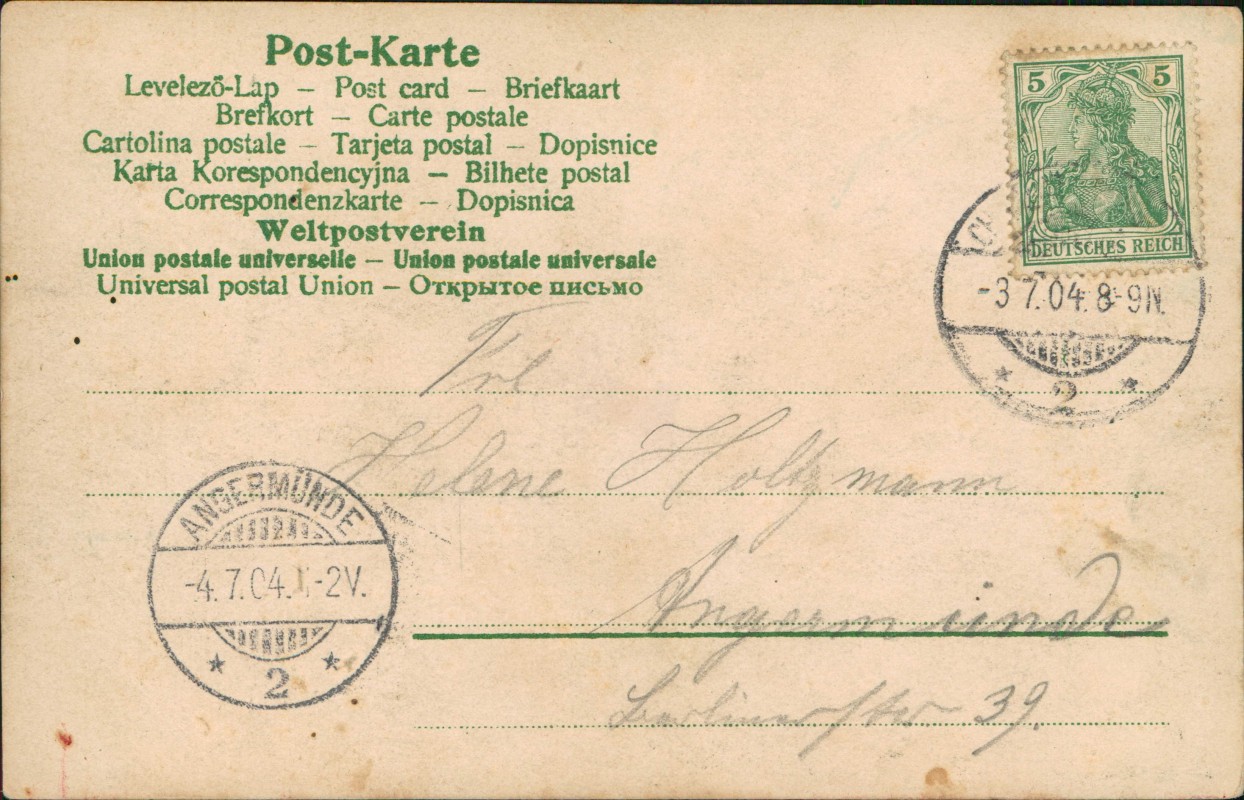 Post-Karte
Levelező-Lap – Post card – Briefkaart
Brefkort – Carte postale
Cartolina postale – Tarjeta postal – Dopisnice
Karta Korespondencyjna – Bilhete postal
Correspondenzkarte – Dopisnica
Weltpostverein
Union postale universelle – Union postale universale
Universal postal Union – Открытое письмо
5 5
DEUTSCHES REICH
-3 7.04. 8-9N.
2
Frl
Helene Holtzmann
Angermünde
Berlinerstr 39.
ANGERMÜNDE
-4.7.04. -2V.
2